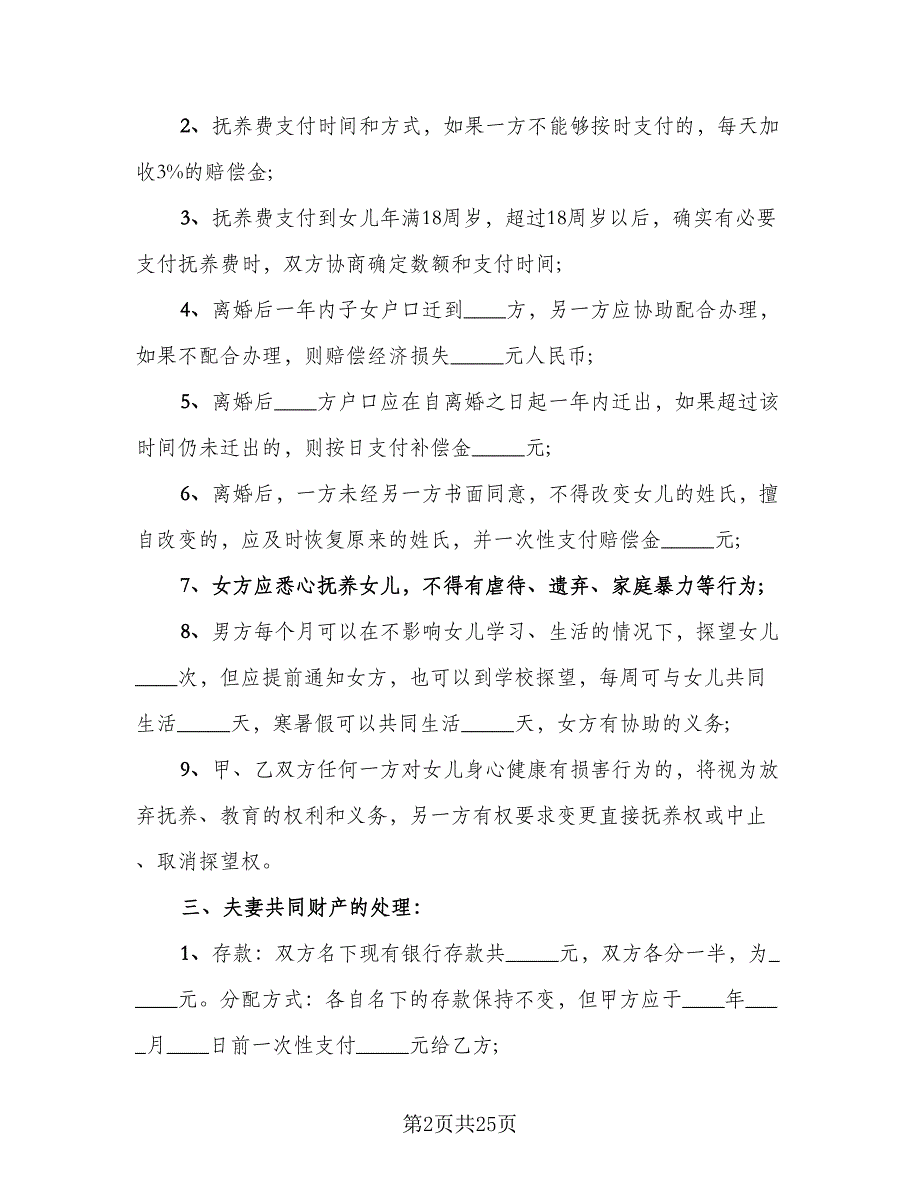 2、抚养费支付时间和方式，如果一方不能够按时支付的，每天加
收3%的赔偿金;
3、抚养费支付到女儿年满18周岁，超过18周岁以后，确实有必要
支付抚养费时，双方协商确定数额和支付时间;
4、离婚后一年内子女户口迁到____方，另一方应协助配合办理，
如果不配合办理，则赔偿经济损失_____元人民币;
5、离婚后____方户口应在自离婚之日起一年内迁出，如果超过该
时间仍未迁出的，则按日支付补偿金_____元;
6、离婚后，一方未经另一方书面同意，不得改变女儿的姓氏，擅
自改变的，应及时恢复原来的姓氏，并一次性支付赔偿金_____元;
7、女方应悉心抚养女儿，不得有虐待、遗弃、家庭暴力等行为;
8、男方每个月可以在不影响女儿学习、生活的情况下，探望女儿
____次，但应提前通知女方，也可以到学校探望，每周可与女儿共同
生活_____天，寒暑假可以共同生活_____天，女方有协助的义务;
9、甲、乙双方任何一方对女儿身心健康有损害行为的，将视为放
弃抚养、教育的权利和义务，另一方有权要求变更直接抚养权或中止
、取消探望权。
三、夫妻共同财产的处理：
1、存款：双方名下现有银行存款共_____元，双方各分一半，为_
____元。分配方式：各自名下的存款保持不变，但甲方应于____年___
_月____日前一次性支付_____元给乙方;
第2页共25页